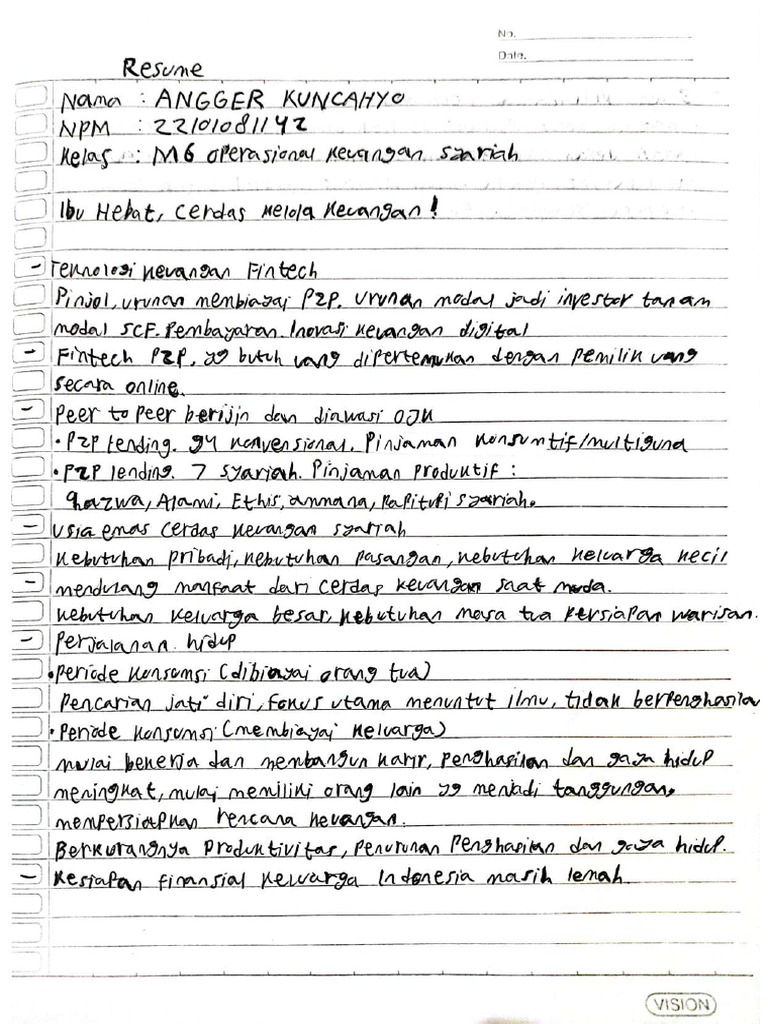 No.
Date.
Resume
Nama : ANGGER KUNCAHYO
NPM : 22101081142
Kelas : M6 operasional keuangan syariah
Ibu Hebat, Cerdas Kelola Keuangan!
- Teknologi keuangan Fintech
Pinjol, urunan membiayai P2P. urunan modal jadi investor tanam
modal SCF. Pembayaran. Inovasi keuangan digital
- Fintech P2P, yg butuh uang dipertemukan dengan pemilik uang
secara online.
- Peer to Peer berijin dan diawasi OJK
• P2P lending. 94 konvensional. Pinjaman konsumtif/multiguna
• P2P lending. 7 syariah. Pinjaman Produktif :
ghazwa, Alami, Ethis, ammana, Papitupi syariah.
- Usia emas cerdas keuangan syariah
kebutuhan pribadi, kebutuhan pasangan, kebutuhan keluarga kecil
- mendulang manfaat dari cerdas keuangan saat muda.
kebutuhan keluarga besar, kebutuhan masa tua persiapan warisan.
- Perjalanan hidup
• Periode konsumsi (dibiayai orang tua)
Pencarian jati diri, fokus utama menuntut ilmu, tidak berpenghasilan
• Periode konsumsi (membiayai keluarga)
mulai bekerja dan membangun karir, penghasilan dan gaya hidup
meningkat, mulai memiliki orang lain yg menjadi tanggungan,
mempersiapkan rencana keuangan.
Berkurangnya produktivitas, penurunan penghasilan dan gaya hidup.
- Kesiapan finansial keluarga Indonesia masih lemah
VISION